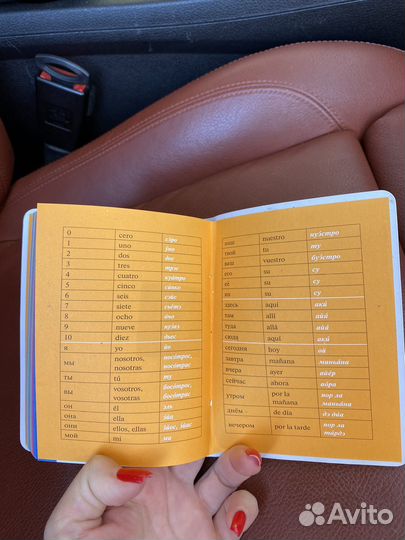 0 cero сэро
1 uno у́но
2 dos дос
3 tres трэс
4 cuatro куа́тро
5 cinco си́нко
6 seis сэйс
7 siete сье́тэ
8 ocho о́чо
9 nueve нуэ́вэ
10 diez дьес
я yo йо
мы nosotros, носо́трос,
nosotras носо́трас
ты tú ту
вы vosotros, восо́трос,
vosotras
он él эль
она
они ellos, ellas
мой mi ми
наш nuestro нуэ́стро
твой tu ту
ваш vuestro буэ́стро
его su су
её su су
их su су
здесь aquí аки́
там allí айи́
туда allá айя́
сюда aquí аки́
сегодня hoy ой
завтра mañana манья́на
вчера ayer айе́р
сейчас ahora ао́ра
утром por la пор ла
mañana манья́на
днём de día дэ ди́а
вечером por la tarde пор ла
та́рдэ
Avito